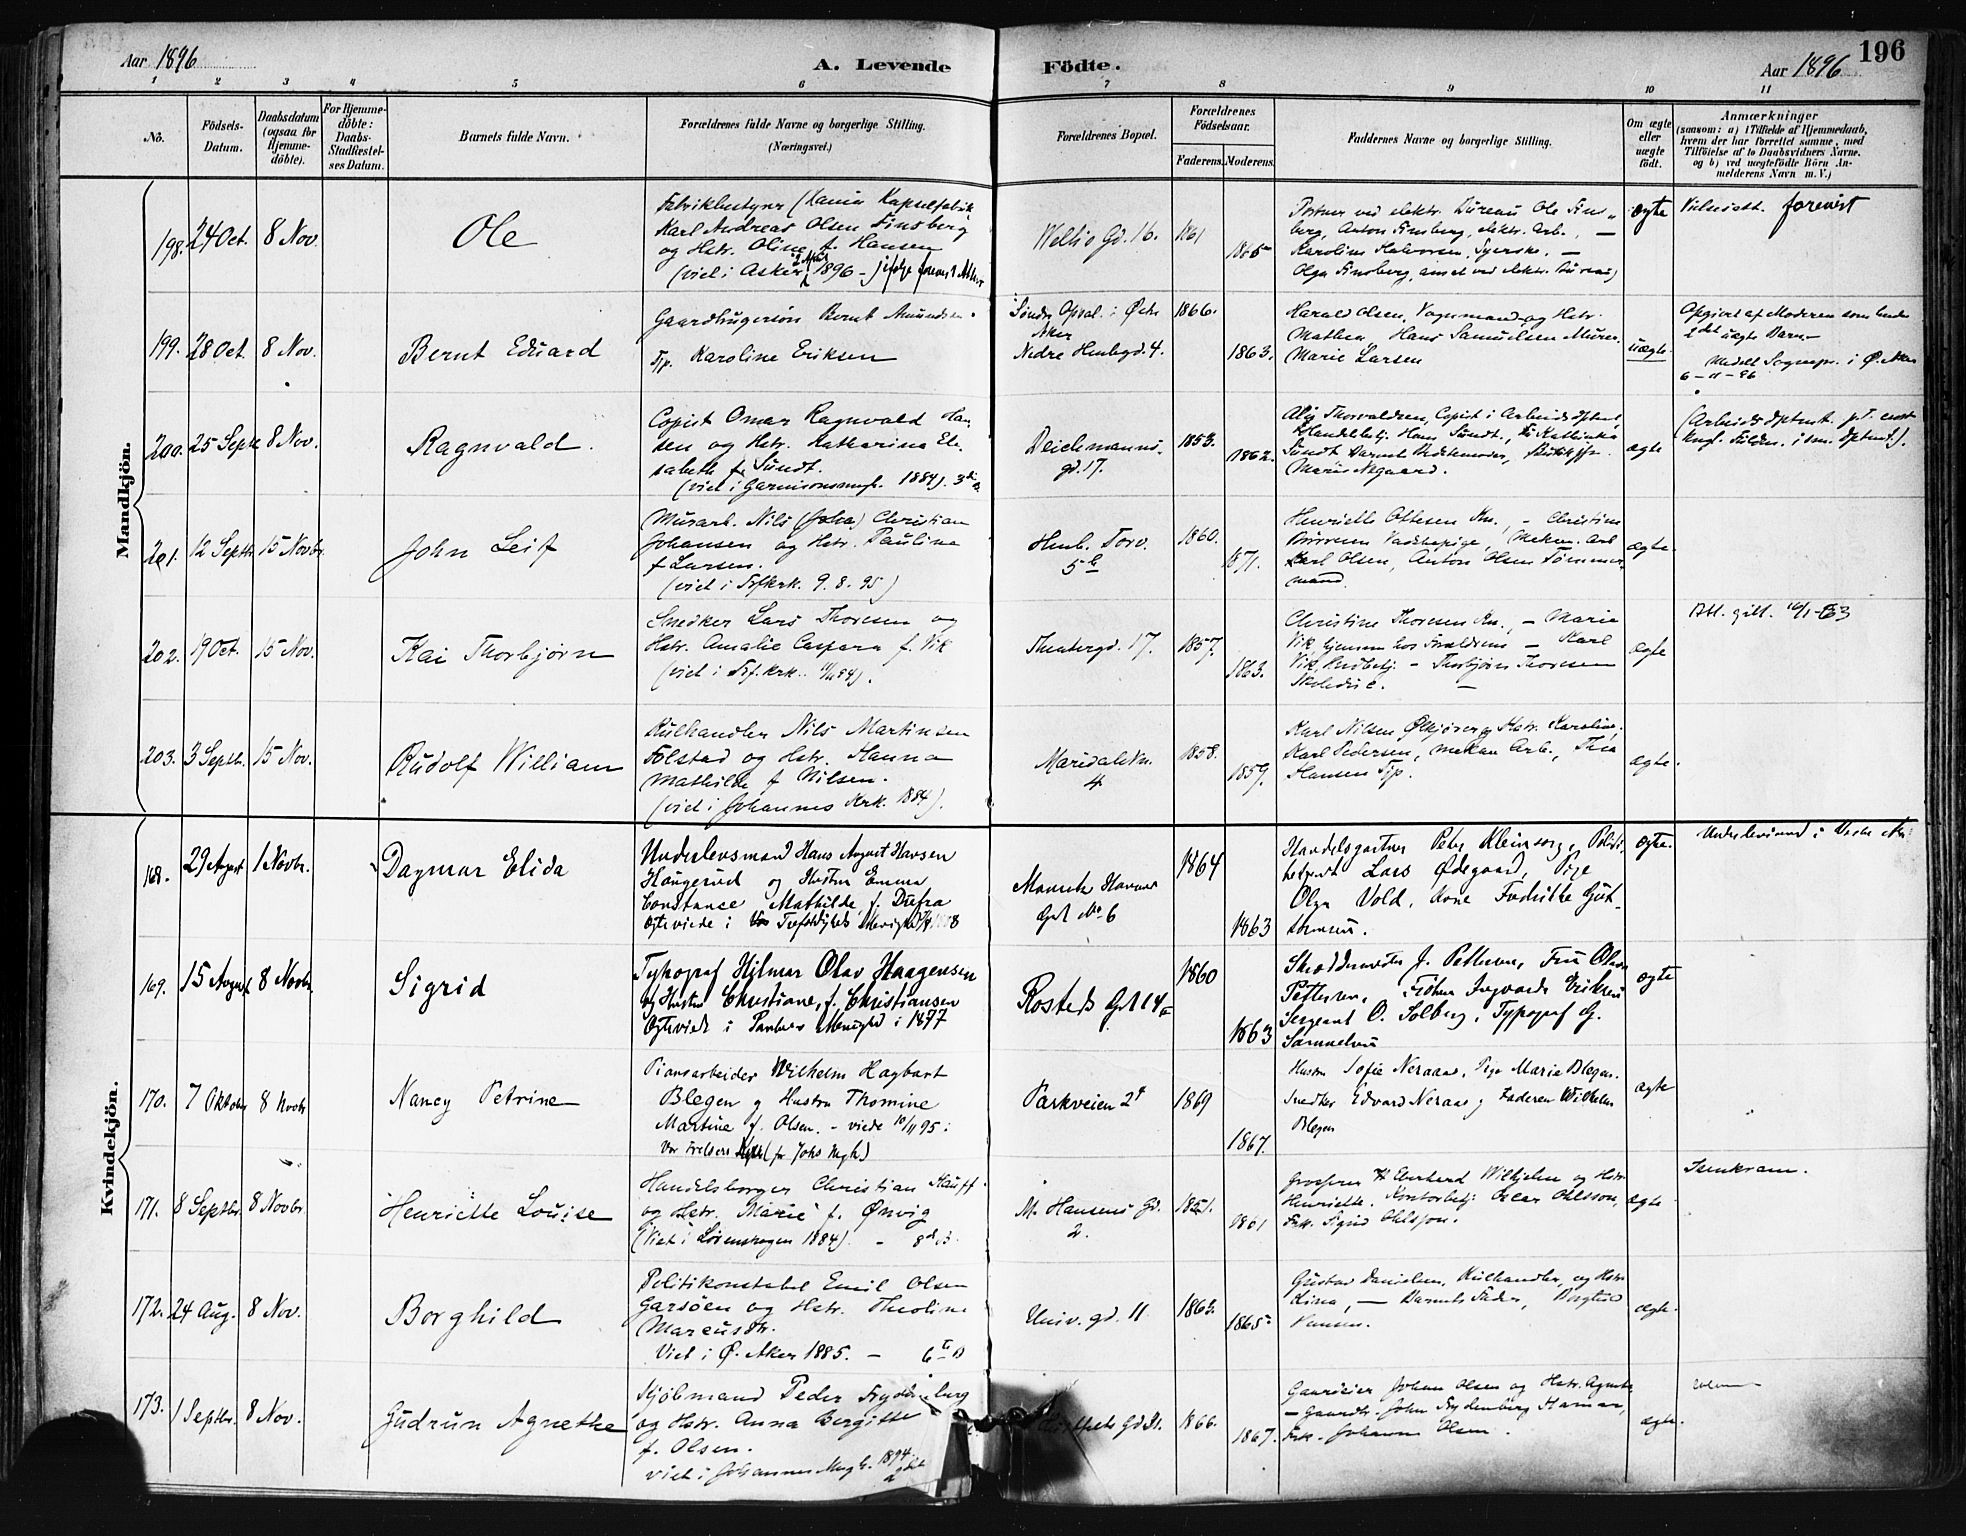 Aar 1896
A. Levende
Födte.
Aar 1896
196
1 2 3 4 5 6 7 8 9 10 11
No.
Födsels-
Datum.
Daabsdatum
(ogsaa for
Hjemme-
döbte).
For Hjemme-
döbte:
Daabs-
Stadfæstel-
ses Datum.
Barnets fulde Navn.
Forældrenes fulde Navne og borgerlige Stilling.
(Næringsvei.)
Forældrenes Bopæl.
Forældrenes
Födselsaar.
Faderens. Moderens.
Faddernes Navne og borgerlige Stilling.
Om ægte
eller
uægte
födt.
Anmærkninger
(saasom: a) i Tilfælde af Hjemmedaab,
hvem der har forrettet samme, med
Tilföielse af to Daabsvidners Navne,
og b) ved uægtefödte Börn An-
melderens Navn m. V.)
Mandkjön.
198. 24 Oct. 8 Nov.
Ole
Fabrikbestyrer
Karl Andreas Olsen Finsberg
og Hstr. Oline f. Hansen
(viet i Asker 1896 –
Weltzo Gd. 16.
1861
1865
Portner ved elektr. Bureau Ole Fins-
berg, Anton Finsberg, elektr. Arb., –
Karoline Halvorsen, Syerske, –
Olga Finsberg, ansat ved elektr. Bureau)
ægte
Vielsesatt. forevist
199. 28 Oct. 8 Nov.
Bernt Eduard
Gaardbrugersön Bernt Amundsen.
Tjp. Karoline Eriksen
Söndre Opsal i Østre
Aker
Nedre Humbgd. 4.
1866.
1863.
Harald Olsen, Vognmand og Hstr.
Mathea, Hans Samuelsen Murer.
Marie Larsen
uægte.
Opgivet af Moderen som hendes
1det uægte Barn.–
Medelt Sognepr. i Ø. Aker
6–11–96
200. 25 Septr. 8 Nov.
Ragnvald.
Copist Omar Ragnvald Han-
sen og Hstr. Katharina Eli-
sabeth f. Sundt.
(viet i Garnisonsmgh. 1884).
Deichmanns-
gd. 17.
1853.
1862.
Thorvaldsen, Copist i Arbeids Dptmt,
Handelsbetj. Hans Sundt, Fr Kathinka
Sundt Barnets Bedstemoder,
Marie Aagaard.
ægte
(Arbeids Dptmt.
201. 12 Septbr. 15 Novbr.
John Leif
Murarb. Nils (Joha) Christian
Johansen og Hstr. Paulina
f Larsen.
(viet i Trfkrk. 9. 8. 95)
Hmb. Torv.
5 b
1860.
1871.
Henriette Ottesen Kn., – Christine
Vadskepige, Mekan. Arb
Karl Olsen, Anton Olsen Tömmer-
mand.
ægte.
202. 19 Oct. 15 Nov.
Kai Thorbjørn
Snedker Lars Thoresen og
Hstr. Amalie Caspara f. Vik
(viet i Trf. krk.
Theatergd. 17.
1857.
1863.
Christine Thoresen Kn., – Maria
Vik hjemme hos Forældrene – Karl
Vik, – Thorbjörn Thoresen
Skoledis c.
ægte
Att. gitt. 16/1–63
203. 3 Septbr. 15 Nov.
Rudolf William
Kulhandler Nils Martinsen
Folstad og Hstr. Hanna
Mathilde f Nilsen.
(viet i Johannes Krk. 1884).
Maridalsvn.
4
1858.
1859.
Karl Nilsen Ølkjører og Hstr. Karoline,
Karl Pedersen, mekan Arb., Thea
Hansen Tjp.
ægte.
Kvindekjön.
168. 29 August 1 Novbr.
Dagmar Elida
Underlensmand Hans August Hansen
Haugerud og Hustru Emma
Constance Mathilde f. Dufra
Ægteviede i Vor Trefoldigheds Menighed
Gd No 6
1864
1863
Handelsgartner Peter Kleinsorg, Politi-
betjent Lars Ødegaard, Pige
Olga Vold, Kone Fredrikke Gut-
tormsen.
ægte.
Underlensmand i Vestre Aker
169. 15 August 8 Novbr.
Sigrid
Typograf Hjlmar Olav Haagensen
og Hustru Christiane, f. Christiansen
Ægteviede i Paulus Menighed i 1877
Rosteds Gd 14
1860
1863
Skræddermester J. Pettersen, Fru Olava
Pettersen, Frøken Ingvarda Eriksen
Sergeant O. Solberg, Typograf G.
Samuelsen
ægte
170. 7 Oktober 8 Novbr
Nancy Petrine
Pianoarbeider Wilhelm Hagbart
Blegen og Hustru Thomine
Martine f. Olsen. – viede 10/11 95 i
Vor Frelsers Kirke (fr Johs Mgh)
Parkveien 2
1869
1867.
Hustru Sofie Neraas. Pige Marie Blegen.
Snedker Edvard Neraas og Faderen Wilhelm
Blegen
ægte
171. 8 Septbr. 8 Novbr.
Henriette Louise
Handelsborger Christian Hauff
og Hstr. Marie f. Ønvig
(Viet i Lörenskogen 1884). –
M. Hansens Gd.
2.
1851.
1861
Grosserer H Eberhard Wilhjelm og Hstr
Henriette. Kontorbetj. Oscar Ohlsson,
Frk. Sigrid Ohlsson.
ægte
172. 24 Aug. 8 Nov.
Borghild
Politikonstabel Emil Olsen
Garsöen og Hstr. Theoline
Marcusdtr.
Viet i Ø. Aker 1885. –
Univ. gd. 11
1863.
1865.
Gustav Danielsen, Kulhandler, og Hstr
Lina, – Barnets Fader,
Hansen.
ægte.
173. 1 Septbr. 8 Nov.
Gudrun Agnethe
Mjölmand Peder Frydenberg
og Hstr. Anna Bergitte
f. Olsen.
viet i Johannes Mngh. 1894.
1866.
1867.
Johan Olsen og Hstr. Agnete
– Gaardbr. John Frydenberg Hamar,
Frk. Johanne Olsen.
ægte.